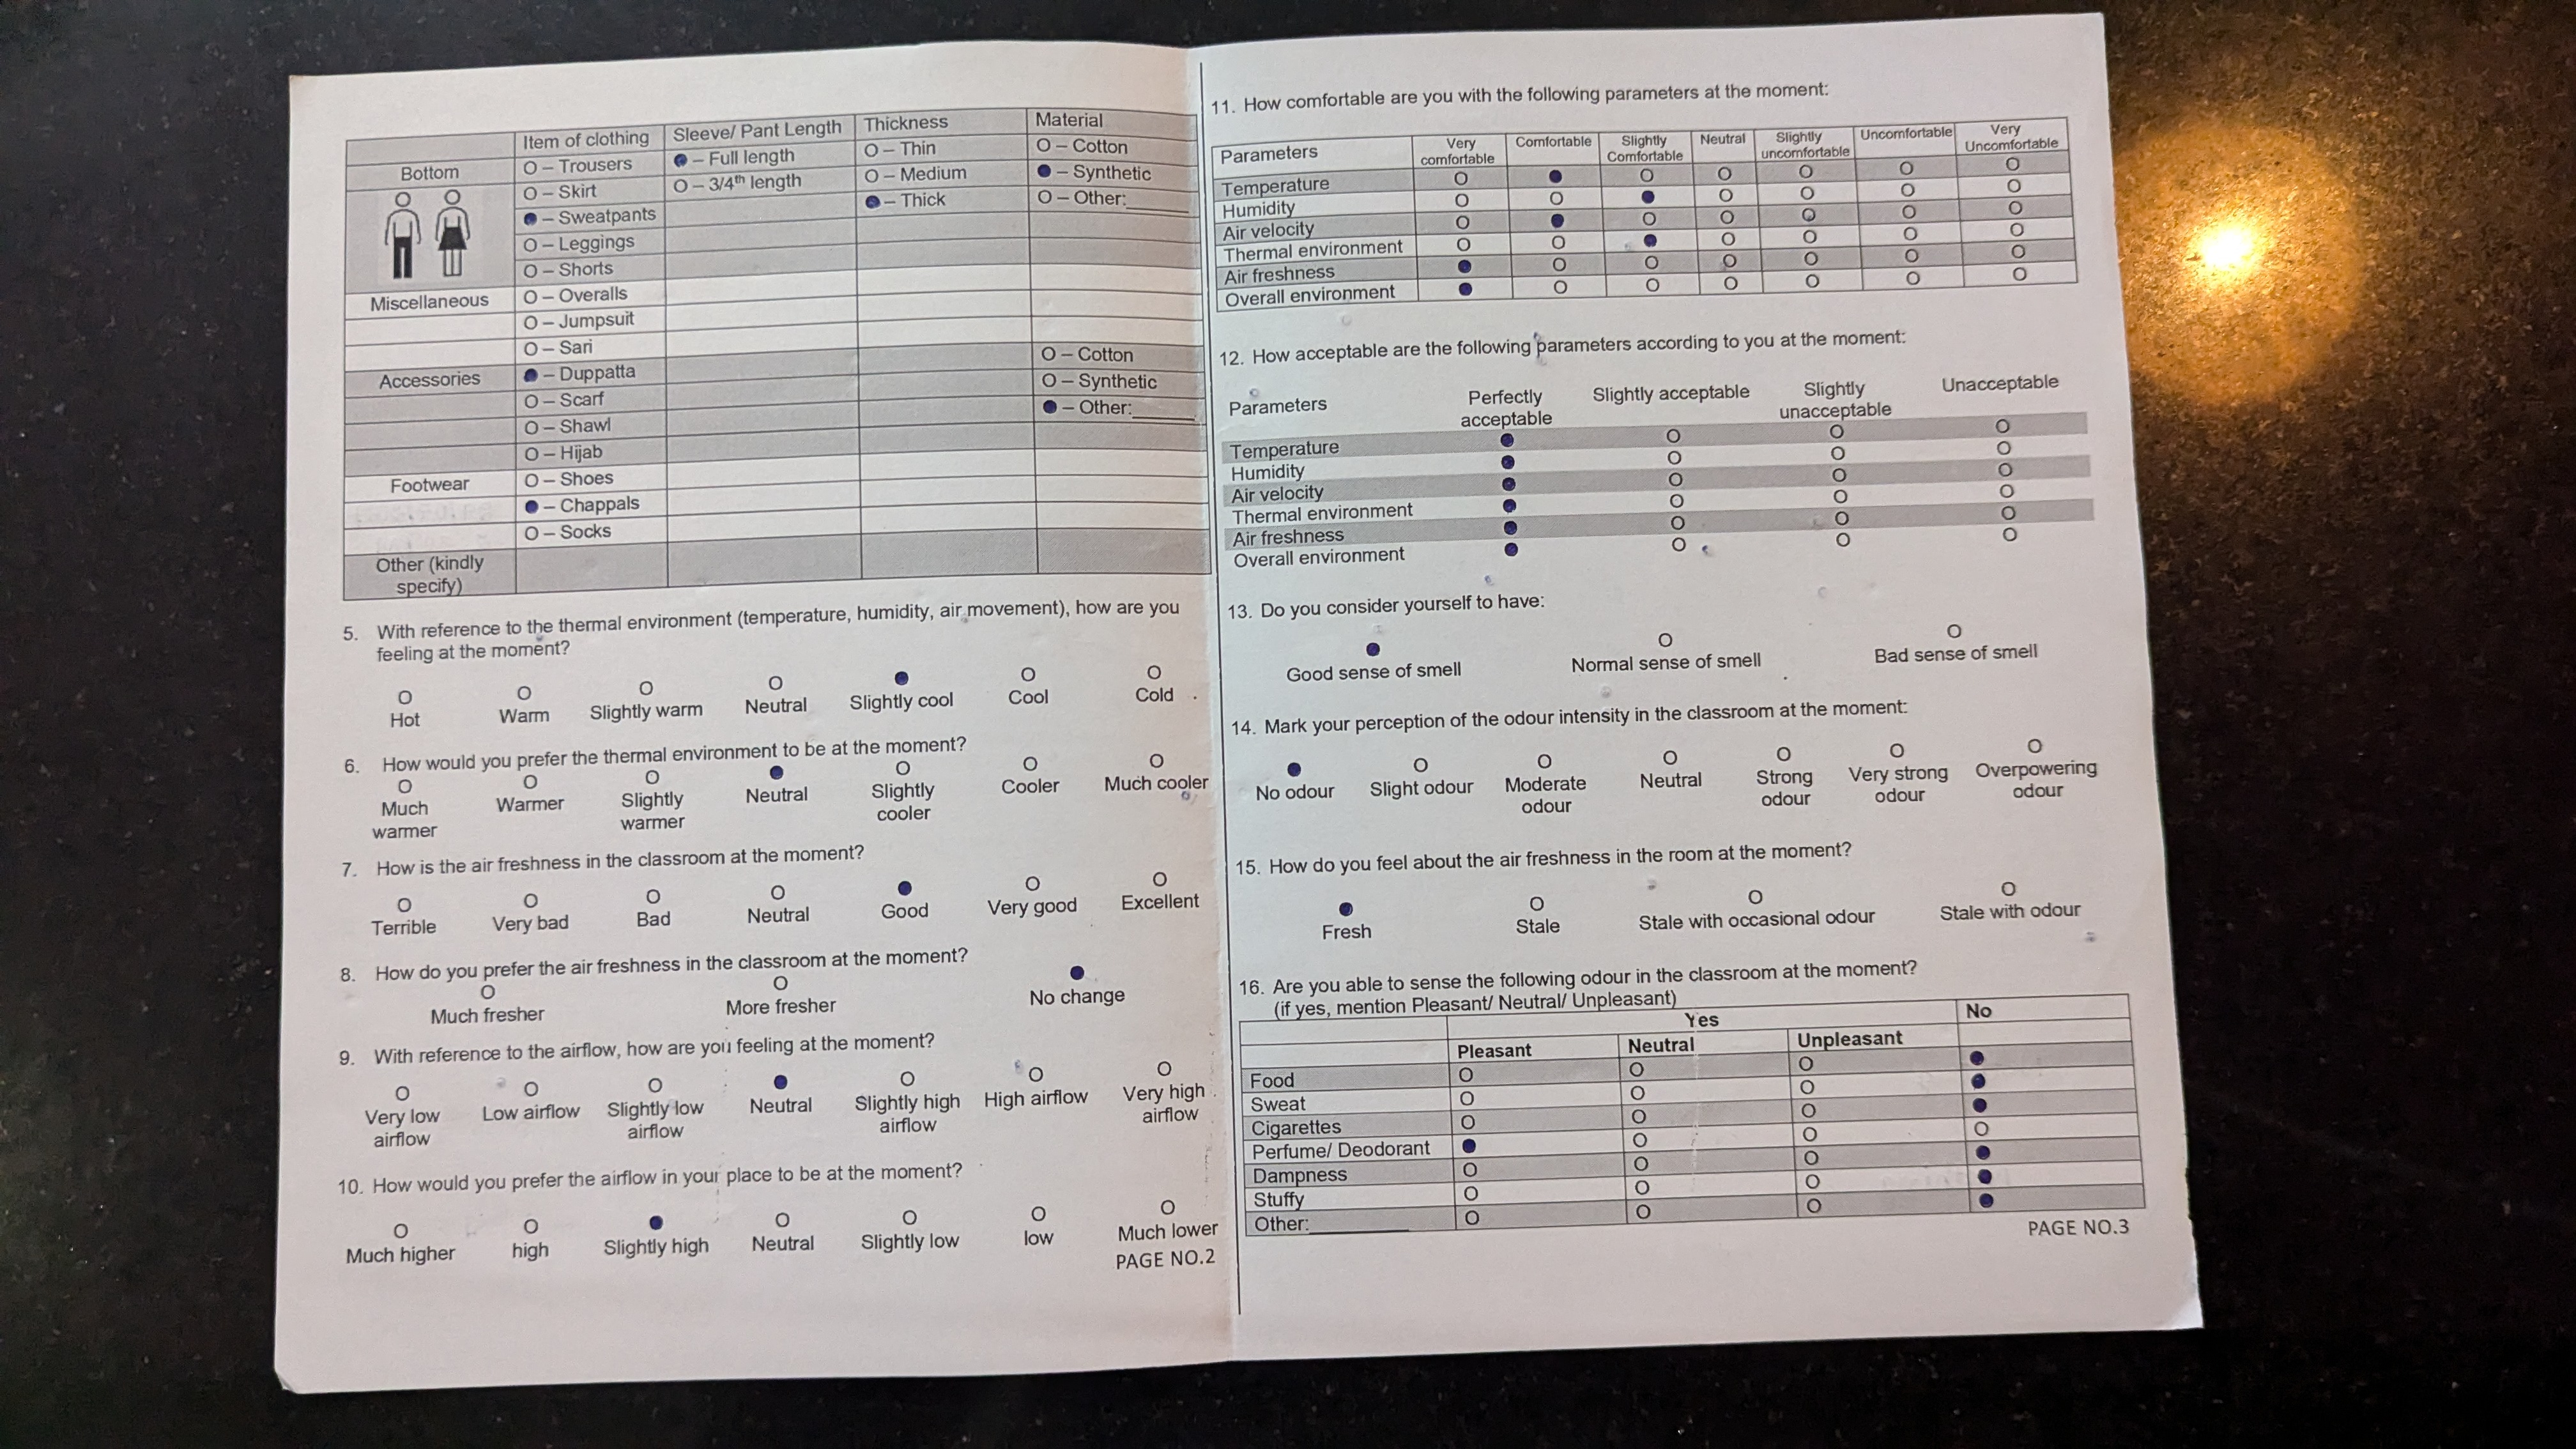 Item of clothing Sleeve/ Pant Length Thickness Material
Bottom O – Trousers ● – Full length O – Thin O – Cotton
O – Skirt O – 3/4th length O – Medium ● – Synthetic
● – Sweatpants ● – Thick O – Other:______
O – Leggings
O – Shorts
Miscellaneous O – Overalls
O – Jumpsuit
O – Sari
Accessories ● – Duppatta O – Cotton
O – Scarf O – Synthetic
O – Shawl ● – Other:______
O – Hijab
Footwear O – Shoes
● – Chappals
O – Socks
Other (kindly
specify)
5. With reference to the thermal environment (temperature, humidity, air movement), how are you
feeling at the moment?
O O O O ● O O
Hot Warm Slightly warm Neutral Slightly cool Cool Cold
6. How would you prefer the thermal environment to be at the moment?
O O O ● O O O
Much Warmer Slightly Neutral Slightly Cooler Much cooler
warmer warmer cooler
7. How is the air freshness in the classroom at the moment?
O O O O ● O O
Terrible Very bad Bad Neutral Good Very good Excellent
8. How do you prefer the air freshness in the classroom at the moment?
O O ●
Much fresher More fresher No change
9. With reference to the airflow, how are you feeling at the moment?
O O O ● O O O
Very low Low airflow Slightly low Neutral Slightly high High airflow Very high
airflow airflow airflow airflow
10. How would you prefer the airflow in your place to be at the moment?
O O ● O O O O
Much higher high Slightly high Neutral Slightly low low Much lower
PAGE NO.2
11. How comfortable are you with the following parameters at the moment:
Parameters Very Comfortable Slightly Neutral Slightly Uncomfortable Very
comfortable Comfortable uncomfortable Uncomfortable
Temperature O ● O O O O O
Humidity O O ● O O O O
Air velocity O ● O O O O O
Thermal environment O O ● O O O O
Air freshness ● O O O O O O
Overall environment ● O O O O O O
12. How acceptable are the following parameters according to you at the moment:
Parameters Perfectly Slightly acceptable Slightly Unacceptable
acceptable unacceptable
Temperature ● O O O
Humidity ● O O O
Air velocity ● O O O
Thermal environment ● O O O
Air freshness ● O O O
Overall environment ● O O O
13. Do you consider yourself to have:
● O O
Good sense of smell Normal sense of smell Bad sense of smell
14. Mark your perception of the odour intensity in the classroom at the moment:
● O O O O O O
No odour Slight odour Moderate Neutral Strong Very strong Overpowering
odour odour odour odour
15. How do you feel about the air freshness in the room at the moment?
● O O O
Fresh Stale Stale with occasional odour Stale with odour
16. Are you able to sense the following odour in the classroom at the moment?
(if yes, mention Pleasant/ Neutral/ Unpleasant)
Yes No
Pleasant Neutral Unpleasant
Food O O O ●
Sweat O O O ●
Cigarettes O O O ●
Perfume/ Deodorant ● O O O
Dampness O O O ●
Stuffy O O O ●
Other:__________ O O O ●
PAGE NO.3